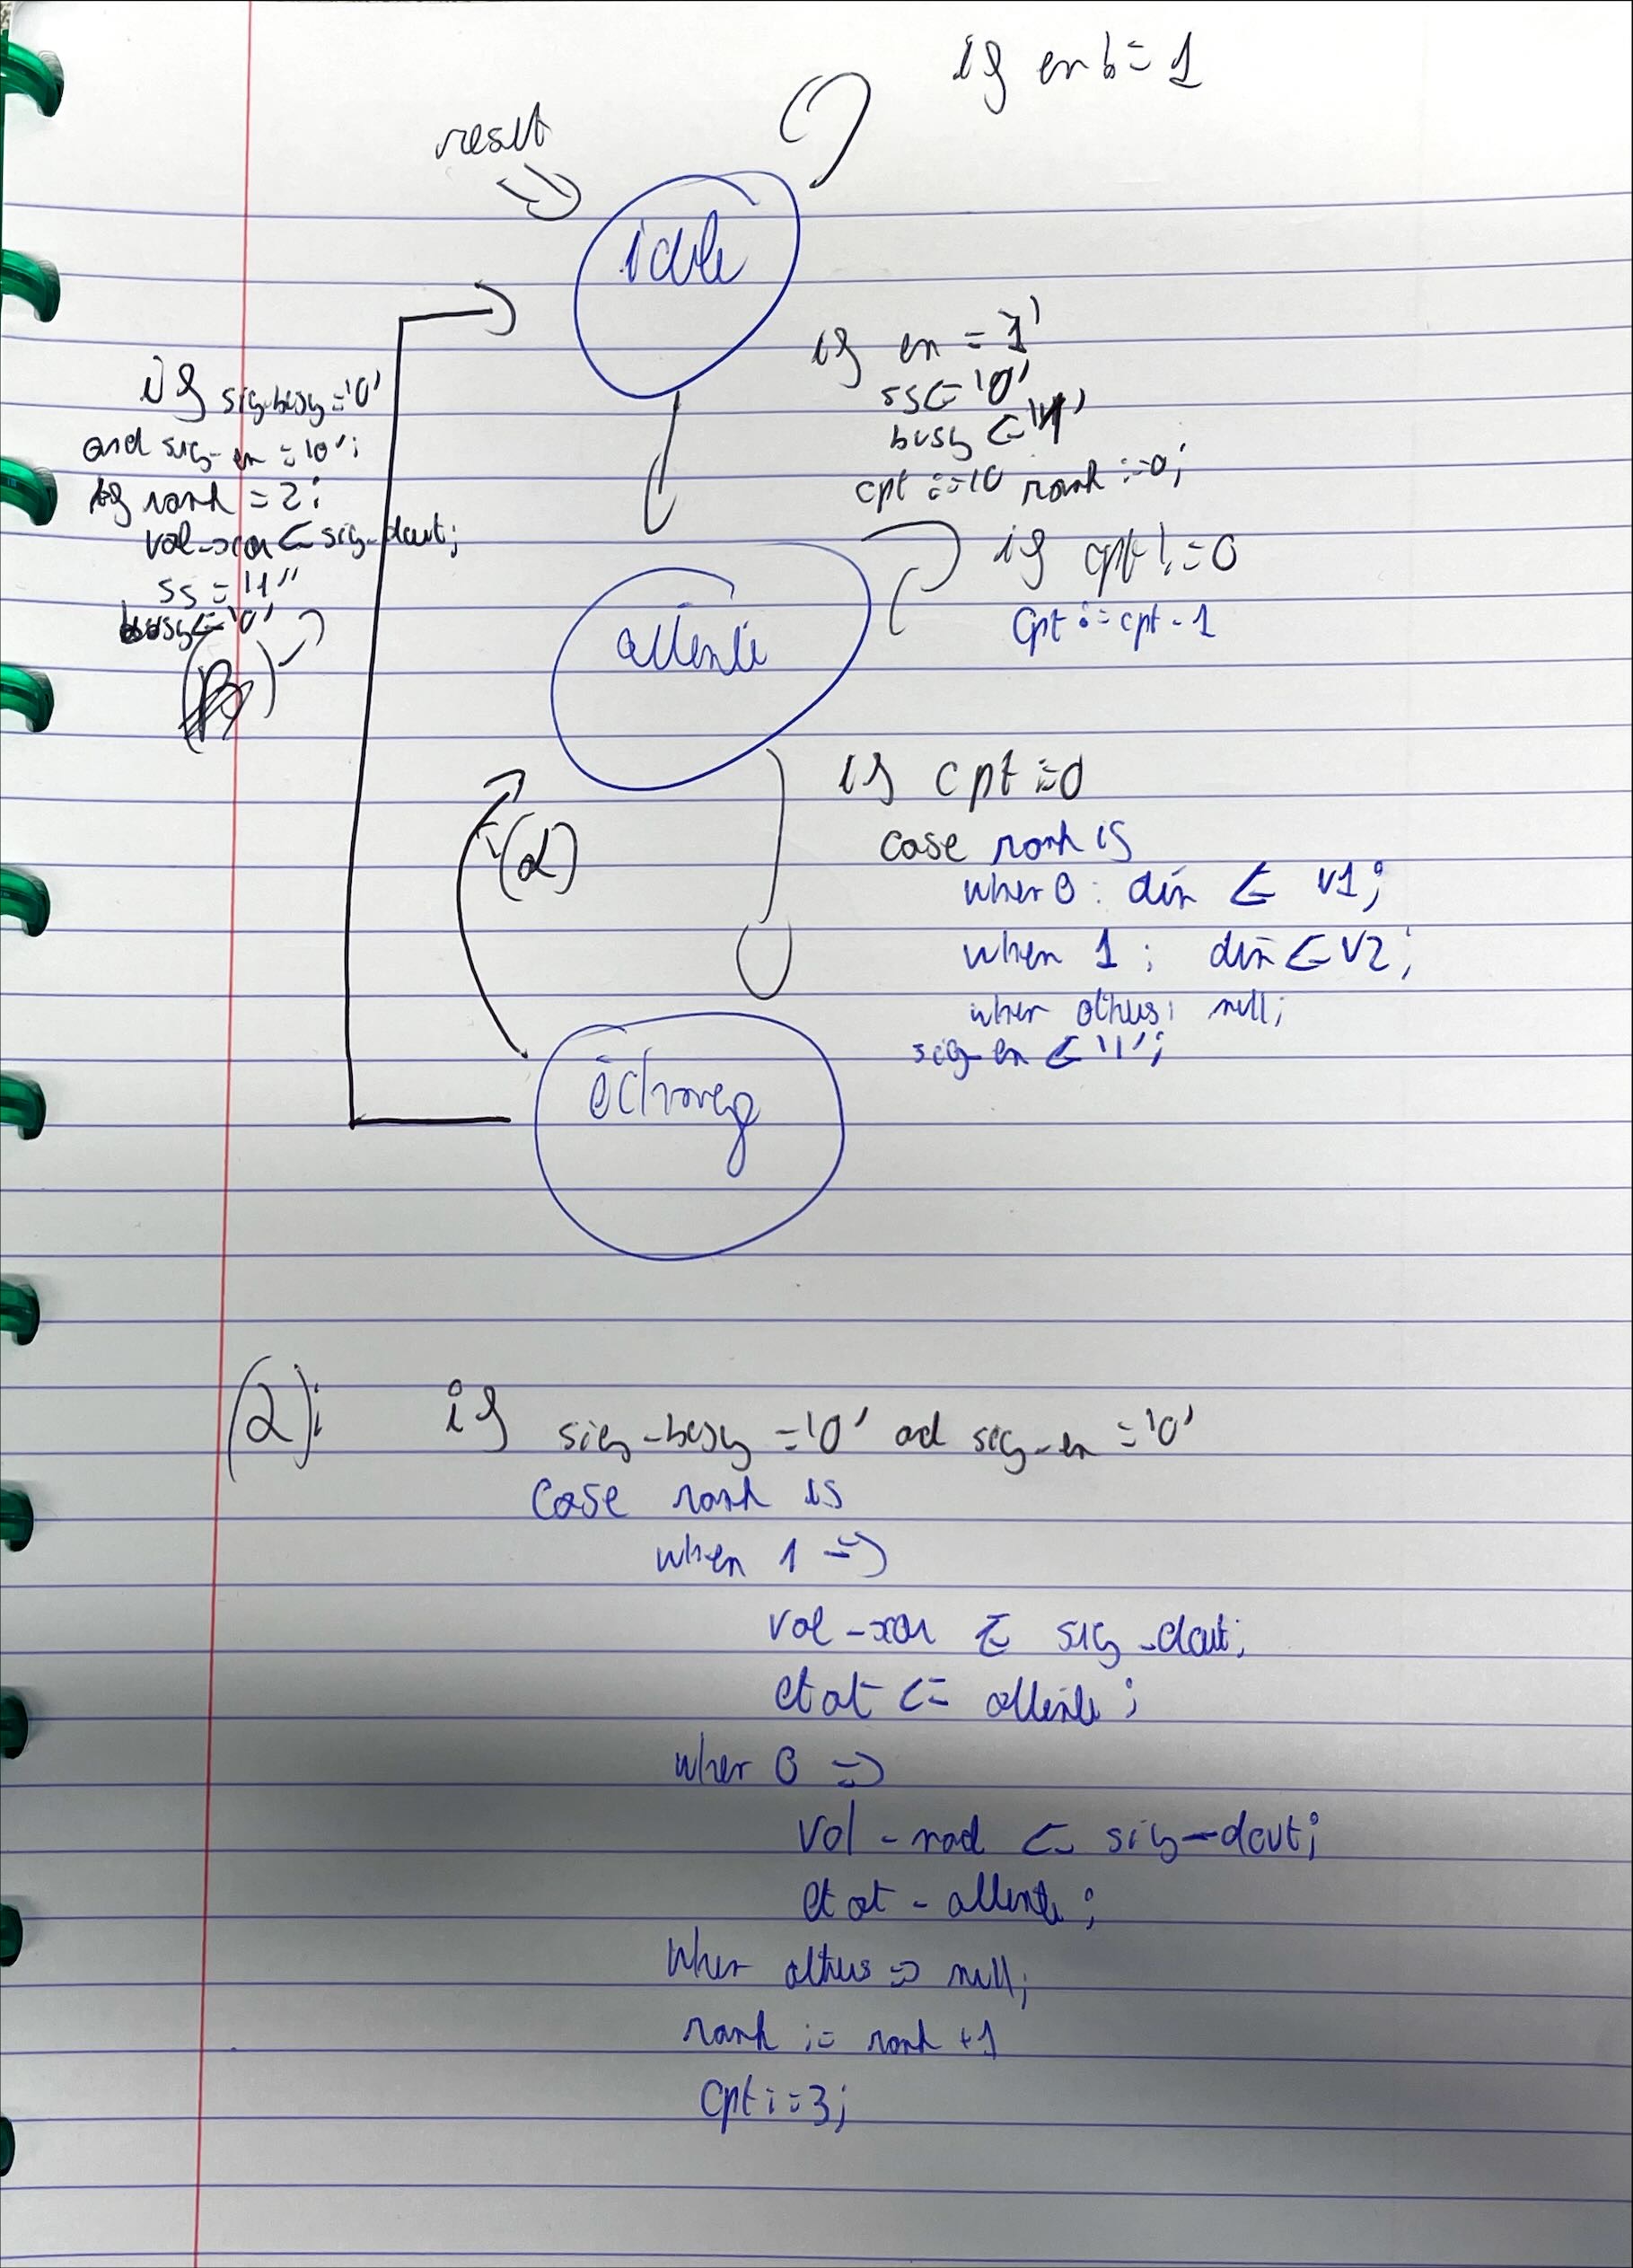 if enb = 1
reset
idle
if en = '1'
ss <= '0'
busy <= '1'
cpt := 10 rank := 0;
if sig-busy = '0'
and sig-en = '0';
if rank = 2;
val-xor <= sig-dout;
ss = '1'
busy <= '0'
if cpt != 0
cpt := cpt - 1
attente
if cpt = 0
(α)
case rank is
when 0 : din <= v1;
when 1 : din <= v2;
when others : null;
sig-en <= '1';
échange
(α): if sig-busy = '0' and sig-en = '0'
case rank is
when 1 =>
val-xor <= sig-dout;
etat <= attente;
when 0 =>
val-nad <= sig-dout;
etat - attente;
when others => null;
rank := rank + 1
cpt := 3;